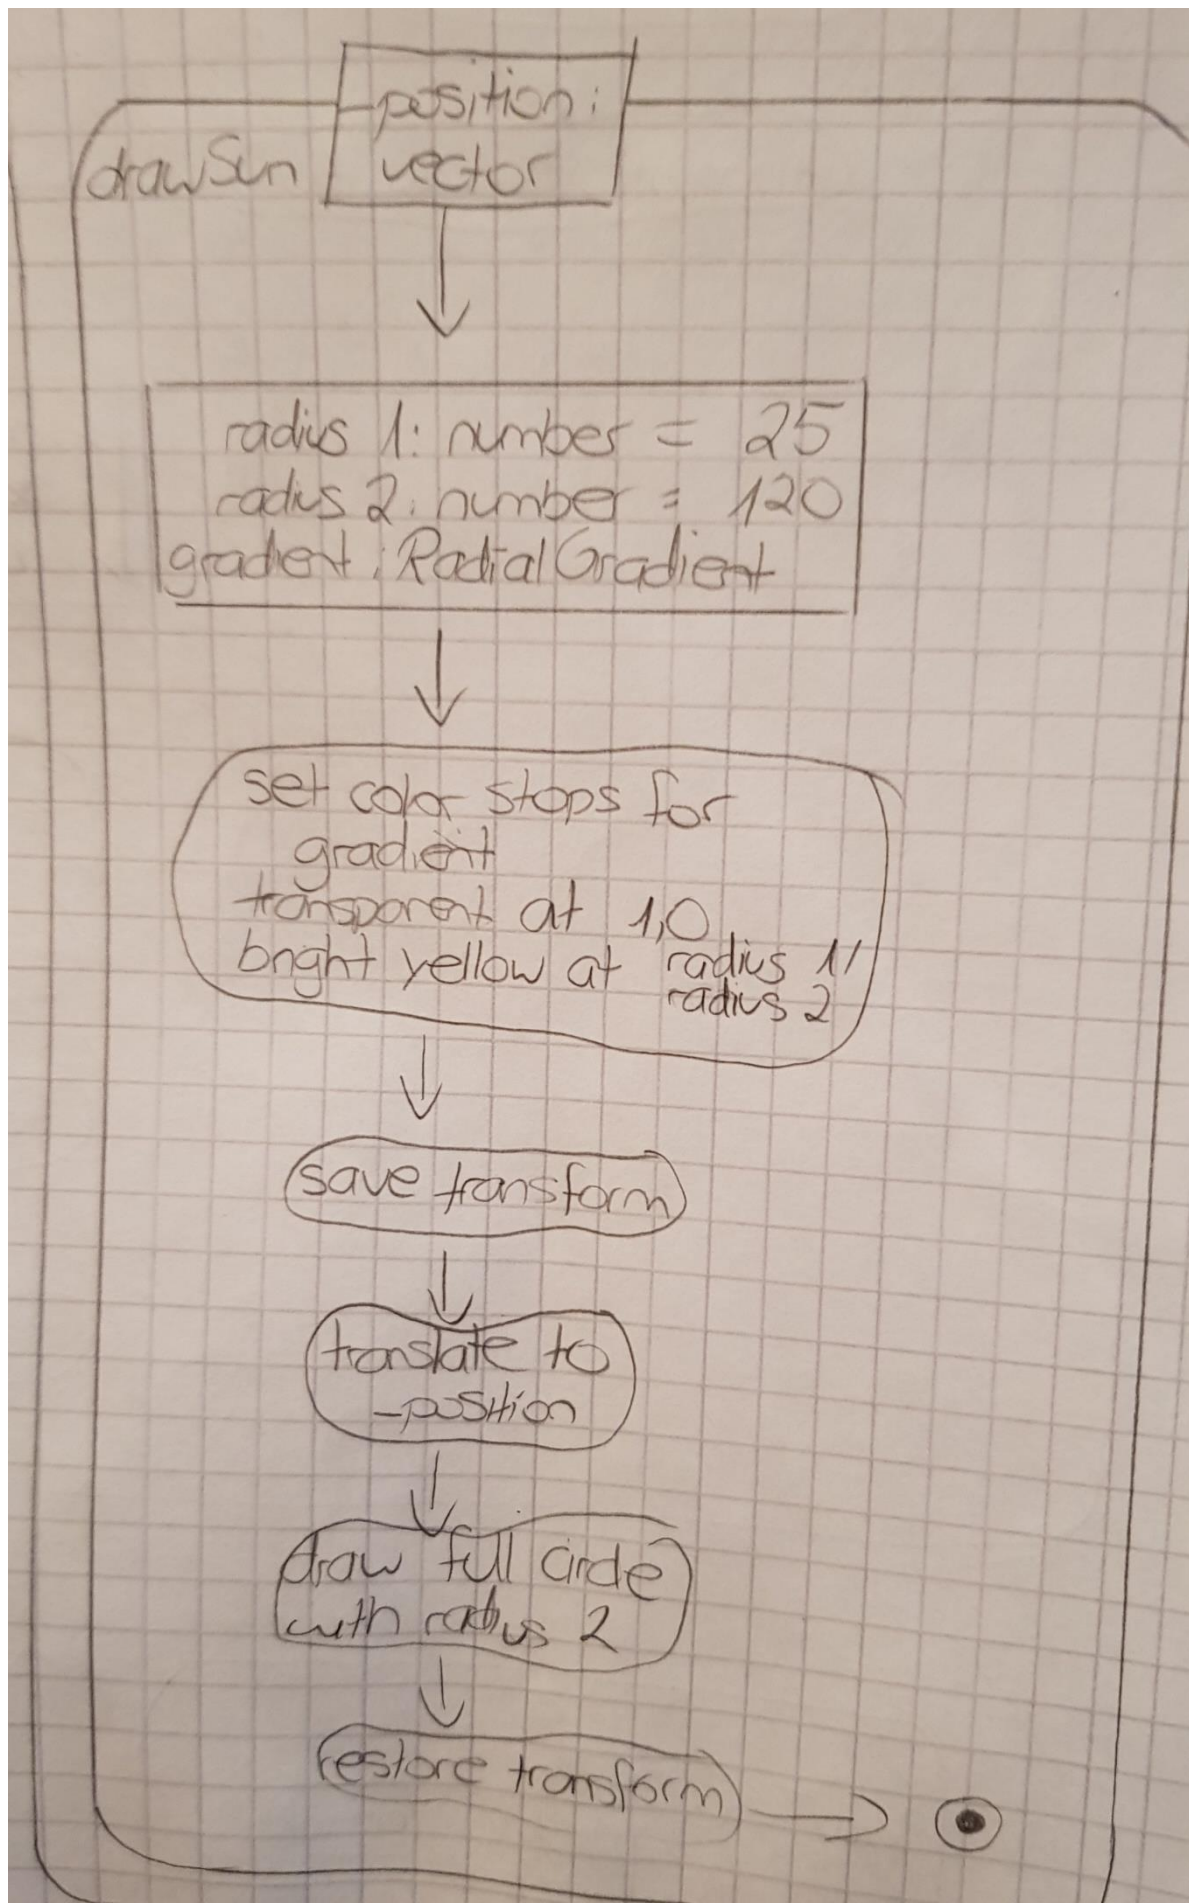 drawSun
_position:
vector
radius 1: number = 25
radius 2: number = 120
gradient: RadialGradient
set color stops for
gradient
transparent at 1,0
bright yellow at radius 1/
radius 2
save transform
translate to
_position
draw full circle
with radius 2
restore transform